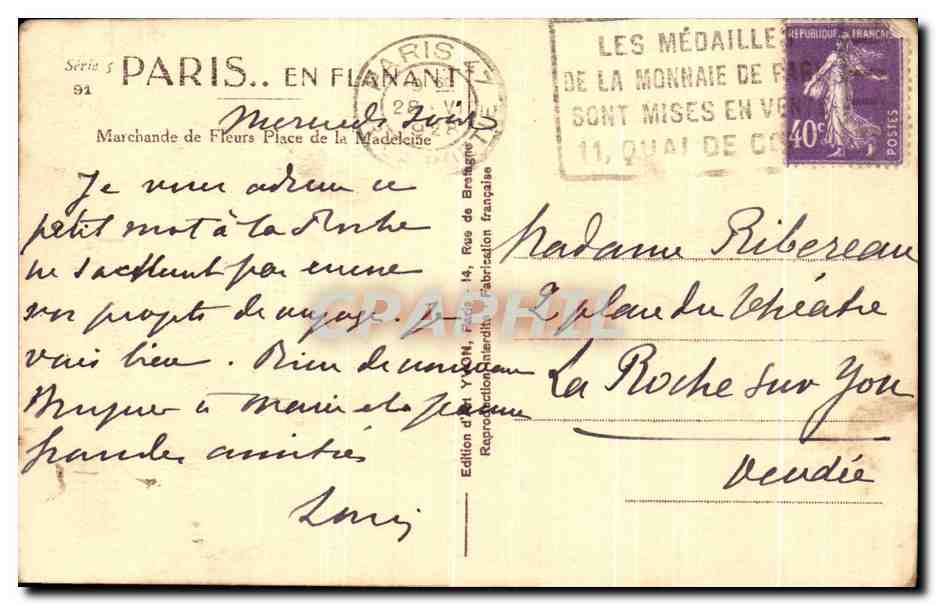 Série 5
91
PARIS.. EN FLANANT
Mercredi soir
Marchande de Fleurs Place de la Madeleine
Je vous adresse ce
petit mot à la Roche
ne sachant pas encore
vos projets de voyage. Je
vais bien. Rien de nouveau
à Marie et à Jeanne
Grandes amitiés
Louis
Edition d'Art YVON, Paris - 14, Rue de Bretagne
Reproduction interdite Fabrication française
PARIS
28 VI
LES MÉDAILLE
DE LA MONNAIE DE PAR
SONT MISES EN VEN
11, QUAI DE CO
REPUBLIQUE FRANÇAISE
40c
POSTES
Madame Ribereau
2 place du théâtre
La Roche sur Yon
Vendée
CPAPHIL